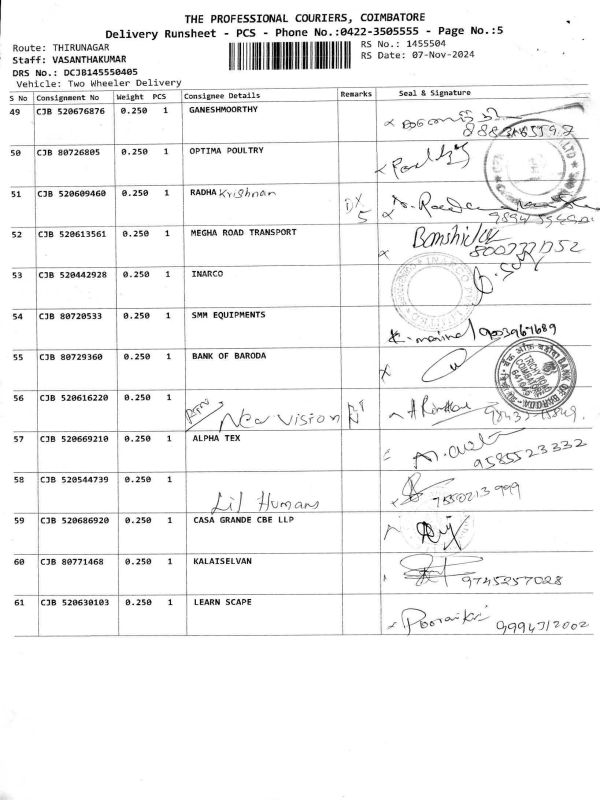 THE PROFESSIONAL COURIERS, COIMBATORE
Delivery Runsheet - PCS - Phone No.:0422-3505555 - Page No.:5
Route: THIRUNAGAR
RS No.: 1455504
Staff: VASANTHAKUMAR
RS Date: 07-Nov-2024
DRS No.: DCJB145550405
Vehicle: Two Wheeler Delivery
S No Consignment No Weight PCS Consignee Details Remarks Seal & Signature
49 CJB 520676876 0.250 1 GANESHMOORTHY
50 CJB 80726805 0.250 1 OPTIMA POULTRY
51 CJB 520609460 0.250 1 RADHA Krishnan
52 CJB 520613561 0.250 1 MEGHA ROAD TRANSPORT
53 CJB 520442928 0.250 1 INARCO
54 CJB 80720533 0.250 1 SMM EQUIPMENTS 9003967689
55 CJB 80729360 0.250 1 BANK OF BARODA BANK OF BARODA
56 CJB 520616220 0.250 1 RTN New Vision
57 CJB 520669210 0.250 1 ALPHA TEX 9585523332
58 CJB 520544739 0.250 1 Lil Humans 7550213999
59 CJB 520686920 0.250 1 CASA GRANDE CBE LLP
60 CJB 80771468 0.250 1 KALAISELVAN 9745257028
61 CJB 520630103 0.250 1 LEARN SCAPE 9994312002